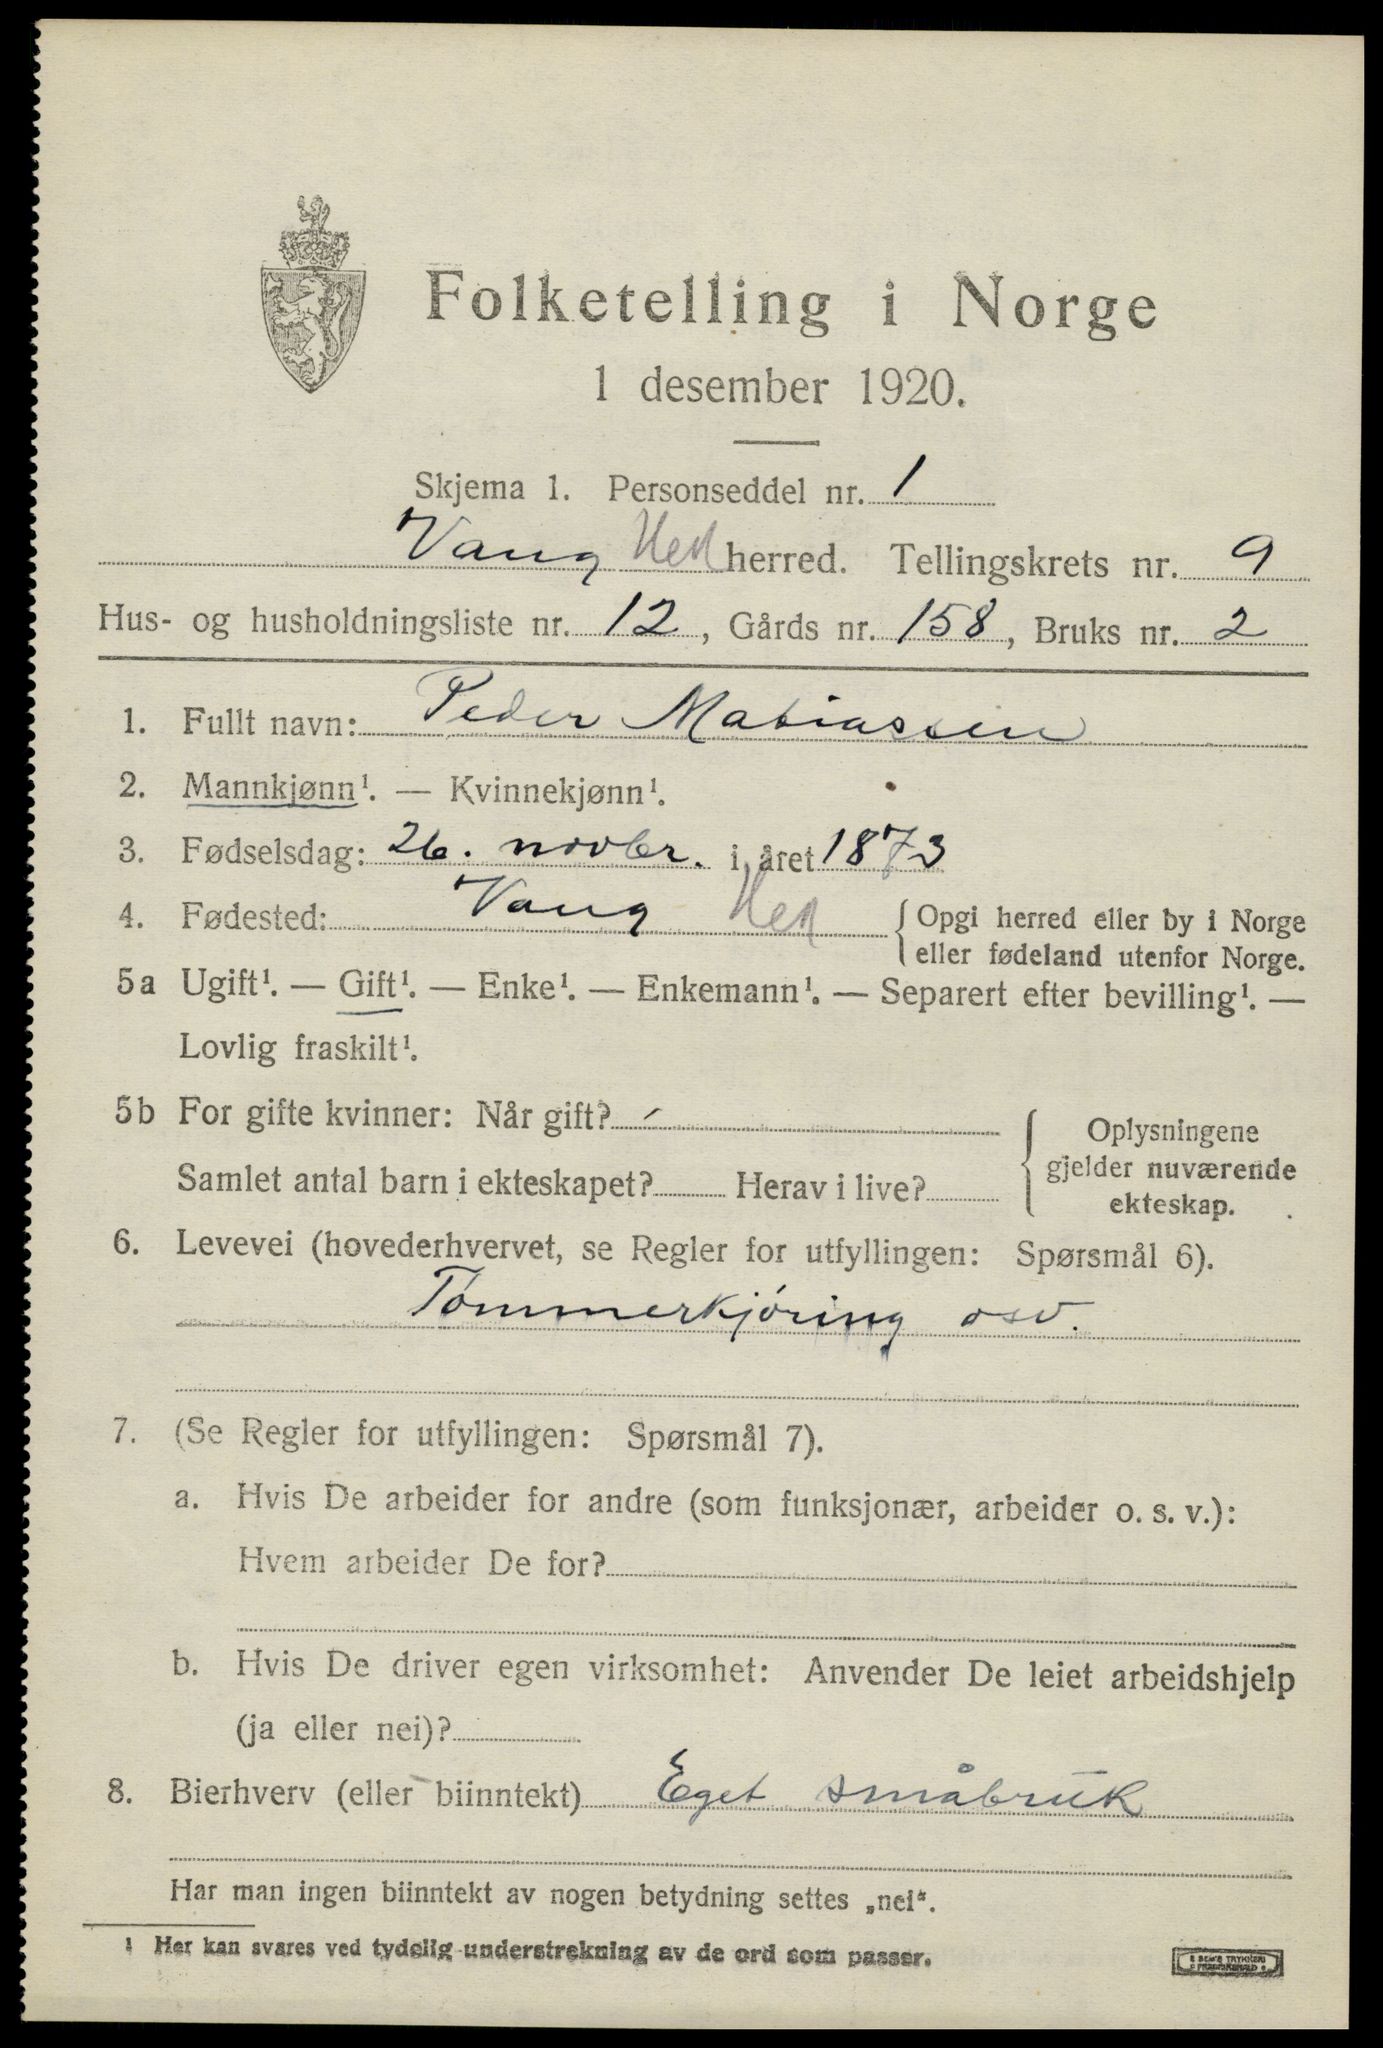 Folketelling i Norge
1 desember 1920.
Skjema 1. Personseddel nr. 1
Vang Hed herred. Tellingskrets nr. 9
Hus- og husholdningsliste nr. 12, Gårds nr. 158, Bruks nr. 2
1. Fullt navn: Peder Matiassen
2. Mannkjønn¹. — Kvinnekjønn¹.
3. Fødselsdag: 26. novbr. i året 1873
4. Fødested: Vang Hed { Opgi herred eller by i Norge
eller fødeland utenfor Norge.
5a Ugift¹. — Gift¹. — Enke¹. — Enkemann¹. — Separert efter bevilling¹. —
Lovlig fraskilt¹.
5b For gifte kvinner: Når gift?
Samlet antal barn i ekteskapet? Herav i live?
{ Oplysningene
gjelder nuværende
ekteskap.
6. Levevei (hovederhvervet, se Regler for utfyllingen: Spørsmål 6).
Tømmerkjöring osv.
7. (Se Regler for utfyllingen: Spørsmål 7).
a. Hvis De arbeider for andre (som funksjonær, arbeider o. s. v.):
Hvem arbeider De for?
b. Hvis De driver egen virksomhet: Anvender De leiet arbeidshjelp
(ja eller nei)?
8. Bierhverv (eller biinntekt) Eget småbruk
Har man ingen biinntekt av nogen betydning settes „nei“.
¹ Her kan svares ved tydelig understrekning av de ord som passer.